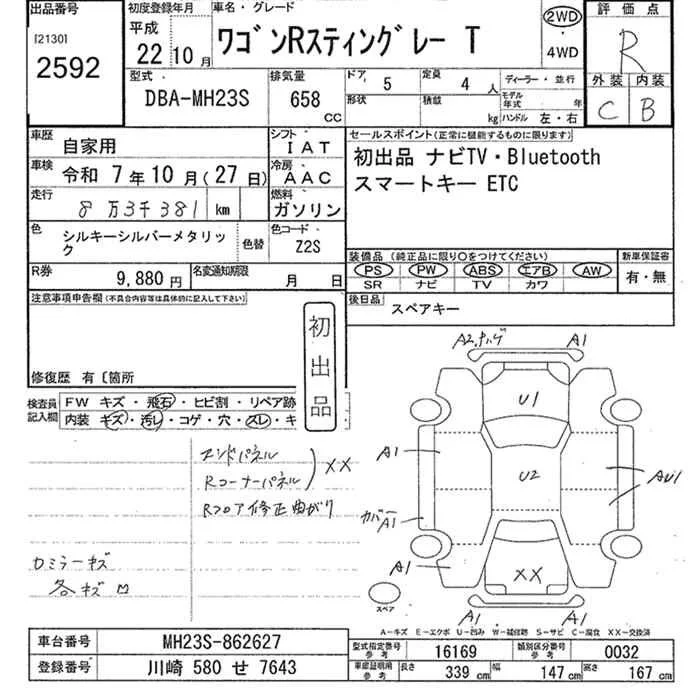 出品番号 初度登録年月 車名・グレード 評価点
[2130] 平成 2WD
2592 22 10月 ワゴンRスティングレー T ・ R
4WD
型式 排気量 ドア 5 定員 4人 ディーラー・並行 外装 内装
DBA-MH23S 658 CC 形状 積載 kg モデル年式 年 C B
ハンドル 左・右
車歴 自家用 シフト IAT セールスポイント(正常に機能するものに限ります)
車検 令和 7年10月(27日) 冷房 AAC 初出品 ナビTV・Bluetooth
走行 8万3千381 km 燃料 ガソリン スマートキー ETC
色 シルキーシルバーメタリック 色替 色コード Z2S
装備品(純正品に限り○をつけてください) 新車保証書
R券 9,880円 名変通知期限 月 日 PS PW ABS エアB AW 有・無
SR ナビ TV カワ
注意事項申告欄(不具合内容等は具体的に記入して下さい) 後日品 スペアキー
初出品
修復歴 有〔箇所
検査員記入欄 FW キズ・飛石・ヒビ割・リペア跡
内装 キズ・汚レ・コゲ・穴・スレ・キ
A2 A1
U1
エンドパネル
Rコーナーパネル XX
Rフロア修正曲がり
A1 U2 AU1
カバー A1
ロミラーキズ
各キズ
A1 XX
スペア
A1 A1
A-キズ E-エクボ U-凹み W-補修跡 S-サビ C-腐食 XX-交換済
車台番号 MH23S-862627 型式指定番号 参考 16169 類別区分番号 参考 0032
登録番号 川崎 580 せ 7643 車庫証明用 参考 長さ 339 cm 幅 147 cm 高さ 167 cm